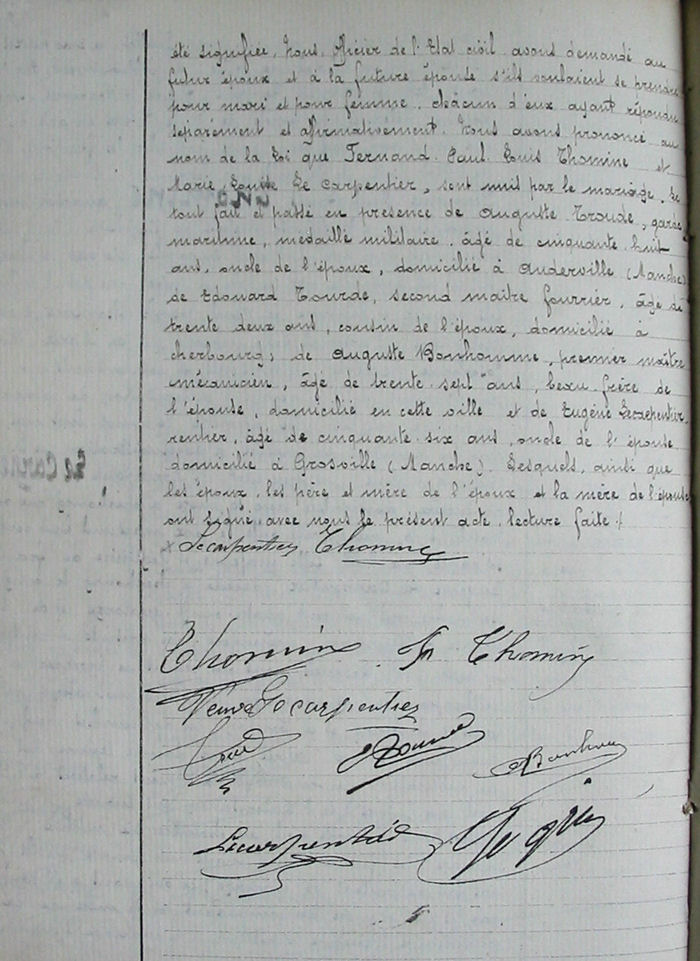 été signifiée. Nous, Officier de l'Etat civil avons demandé au
futur époux et à la future épouse s'ils voulaient se prendre
pour mari et pour femme, chacun d'eux ayant répondu
séparément et affirmativement. Nous avons prononcé au
nom de la Loi que Fernand Paul Louis Thomine et
Marie Louise Le Carpentier, sont unis par le mariage. Le
tout fait et passé en présence de Auguste Troude, garde
maritime, médaillé militaire, âgé de cinquante huit
ans, oncle de l'époux, domicilié à Auderville (Manche)
de Edouard Tourde, second maître fourrier, âgé de
trente deux ans, cousin de l'époux, domicilié à
cherbourg; de Auguste Bonhomme, premier maître
mécanicien, âgé de trente sept ans, beau frère de
l'épouse, domicilié en cette ville et de Eugène Lecarpentier
rentier, âgé de cinquante six ans, oncle de l'épouse
domicilié à Grosville (Manche). Lesquels, ainsi que
les époux, les père et mère de l'époux et la mère de l'épouse
ont signé avec nous le présent acte, lecture faite ./.
Lecarpentier Thomine
Thomine Thomine
Veuve Lecarpentier
Lecarpentier